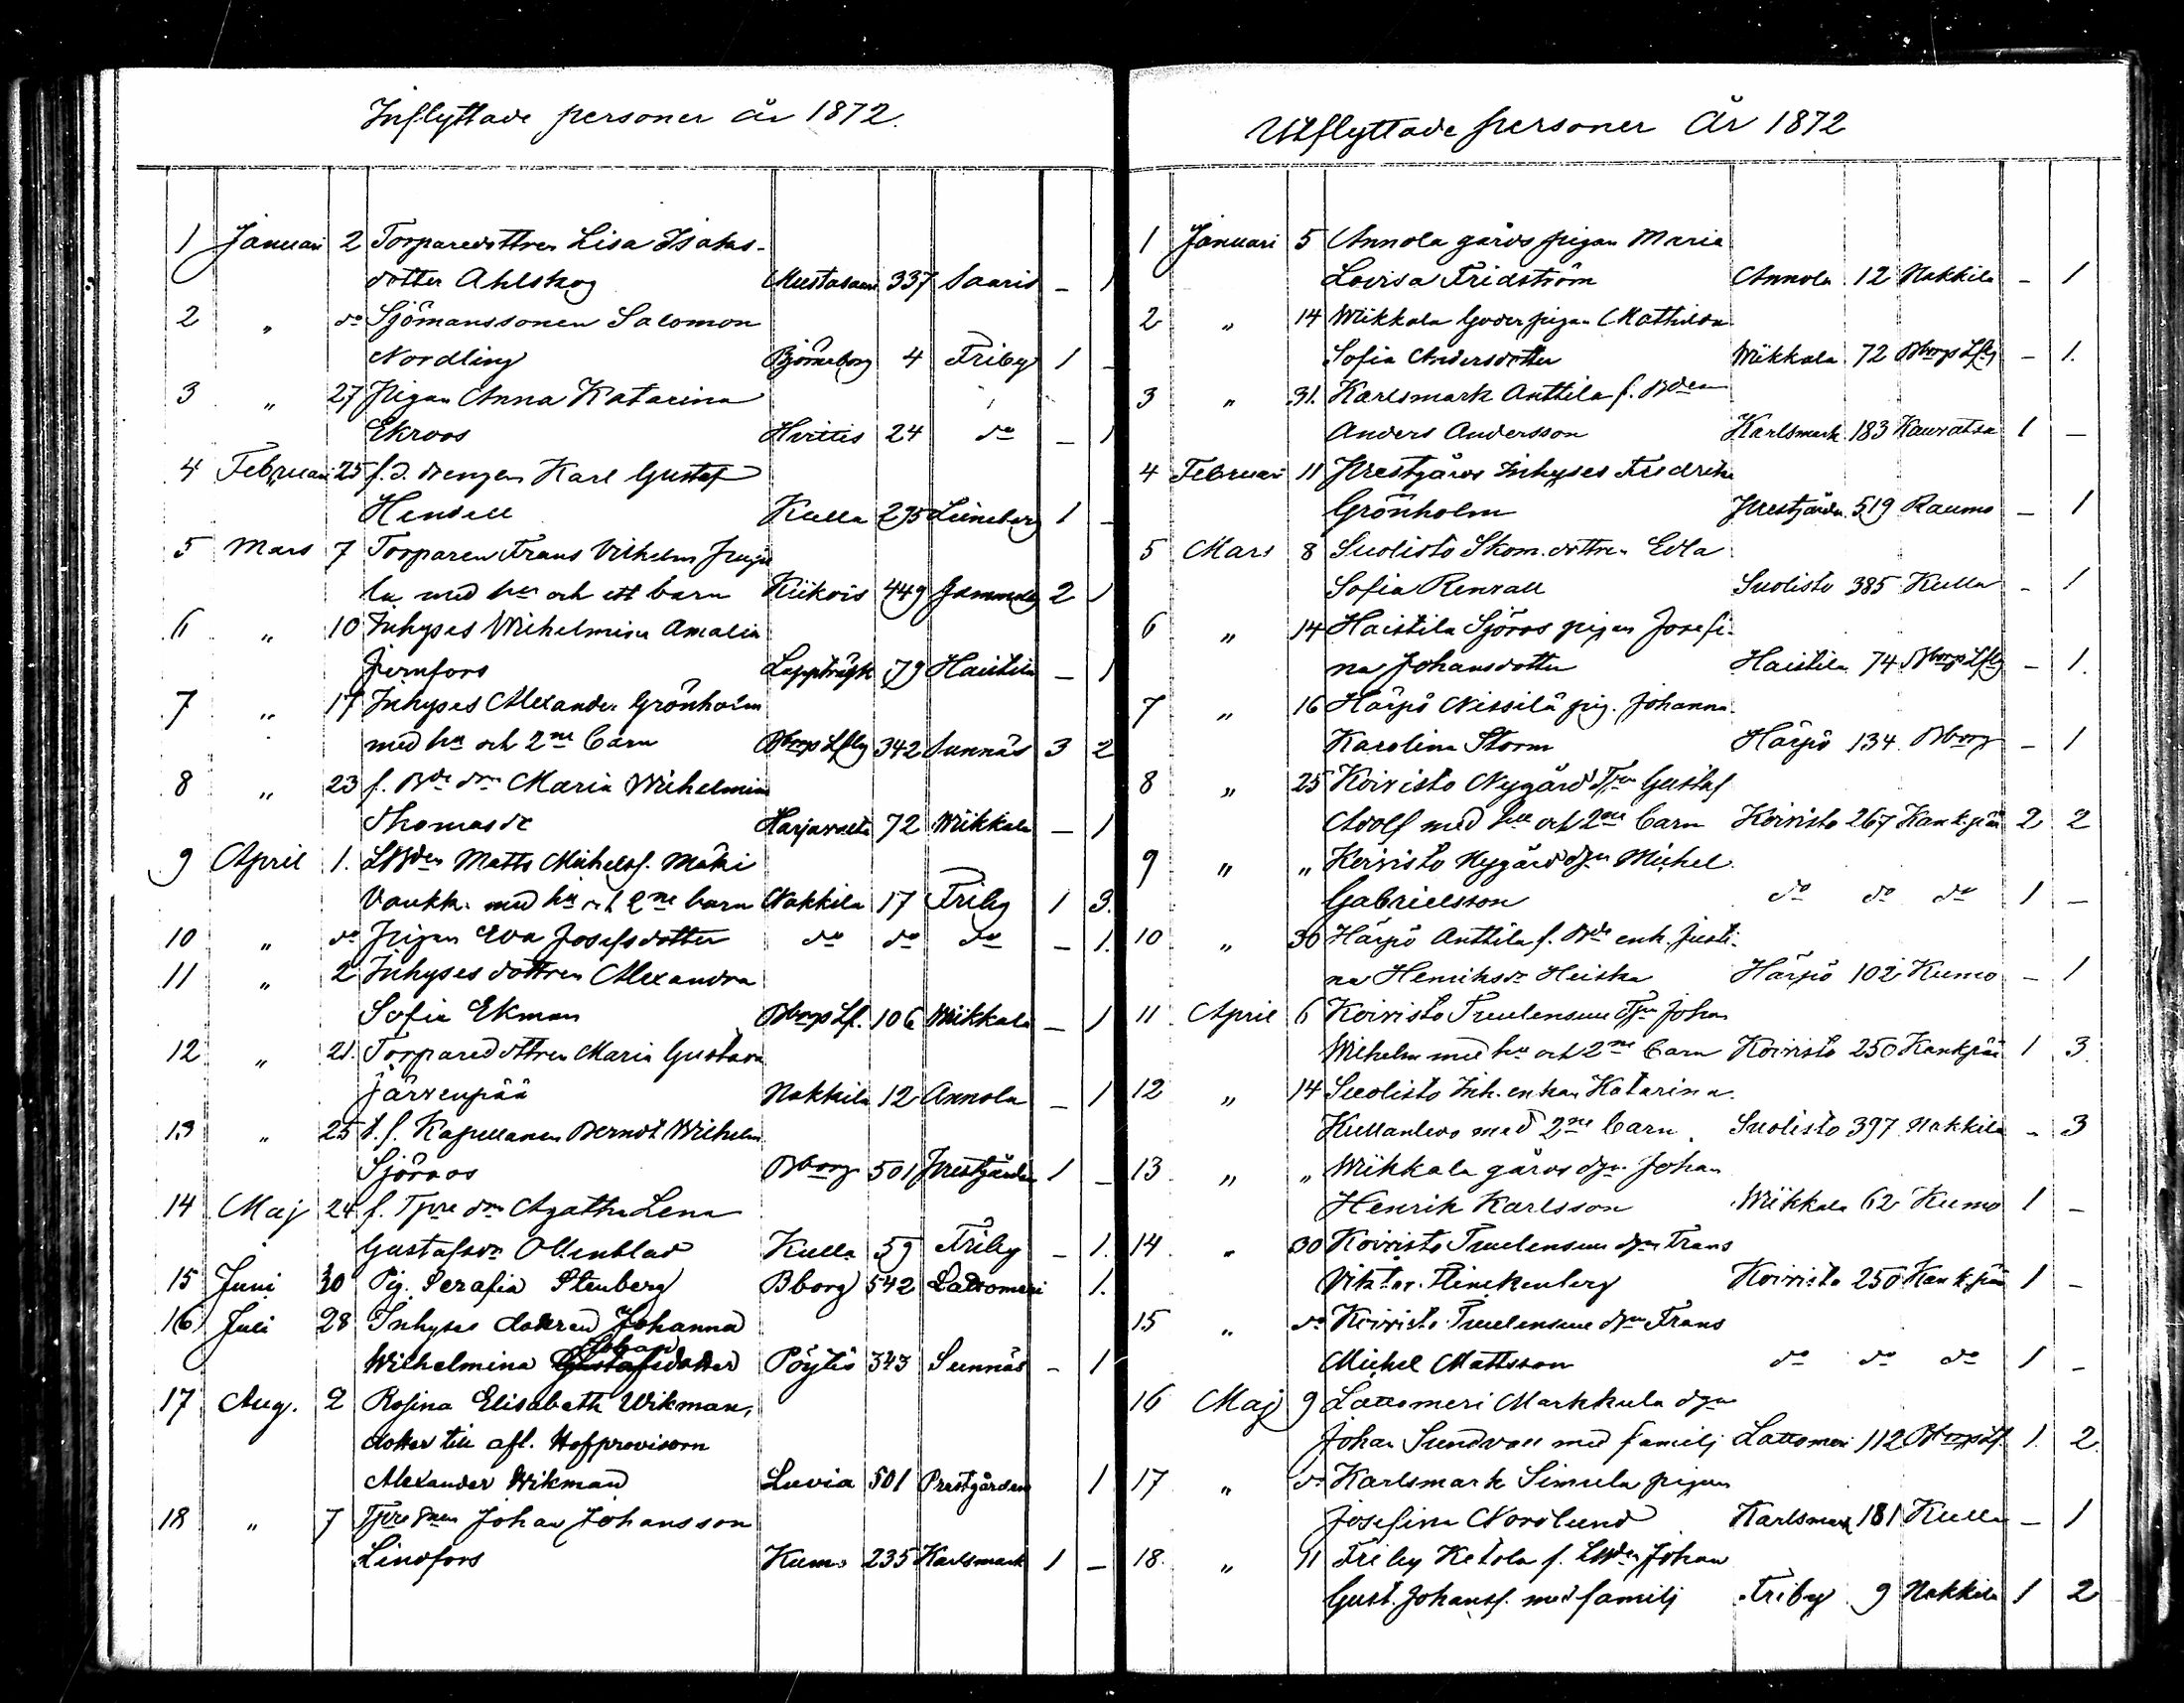 Inflyttade personer år 1872.
1 Januari 2 Torparedottren Lisa Isaks-
dotter Ahlskog 337 Saaris – 1
2 „ do Sjömanssonen Salomon
Nordling Björneborg 4 Friby 1 –
3 „ 27 Pigan Anna Katarina
Ekroos Hvittis 24 do – 1
4 Februari 25 f.d. drengen Karl Gustaf
Hendell Kulla 295 Leineberg 1 –
5 Mars 7 Torparen Frans Vilhelm
la med hu och ett barn Kiikois 449 2 1
6 „ 10 Inhyses Wilhelmina Amalia
Jernfors Lappträsk 79 Haistila – 1
7 „ 17 Inhyses Alexander Grönholm
med hu och 2ne barn Bborgs Lfg 342 Sunnäs 3 2
8 „ 23 f. Bde drn Maria Wilhelmina
Thomasdr Harjavalta 72 Wiikkala – 1
9 April 1. Matts Michelsf. Mäki
Vaukk. med hu och 2ne barn Nakkila 17 Friby 1 3.
10 „ do Pigan Eva Josefsdotter do do do – 1.
11 „ 2 Inhyses dottren Alexandra
Sofia Ekman Bborgs Lf. 106 Wiikkala – 1
12 „ 21. Torparedottren Maria Gustava
Järvenpää Nakkila 12 Annola – 1
13 „ 25 t.f. Kapellanen Berndt Wilhelm
Sjöroos Bborg 501 Prestgården 1 –
14 Maj 24 f. Tpre drn Agatha Lena
Gustafsdr Ollenblad Kulla 59 Friby – 1.
15 Juni 30 Pig. Serafia Stenberg Bborg 542 Lattomeri 1.
16 Juli 28 Inhyses dottren Johanna
Johans
Wilhelmina Gustafsdotter Pöytis 343 Sunnäs – 1
17 Aug. 2 Rosina Elisabeth Wikman,
dotter till afl. Hofprovisorn
Alexander Wikman Luvia 501 Prestgården 1
18 „ 7 Tpre snen Johan Johansson
Lindfors Kumo 235 Karlsmark 1 –
Utflyttade personer År 1872
1 Januari 5 Annola gårds pigan Maria
Lovisa Fridström Annola 12 Nakkila – 1
2 „ 14 Wiikkala pigan Mathilda
Sofia Andersdotter Wiikkala 72 Bborgs Lfg – 1.
3 „ 31. Karlsmark Anttila f. Bden
Anders Andersson Karlsmark 183 Kauvatsa 1 –
4 Februari 11 Prestgårds Inhyses Fredrika
Grönholm Prestgården 519 Raumo – 1
5 Mars 8 Suolisto Skom. dottren Edla
Sofia Renvall Suolisto 385 Kulla – 1
6 „ 14 Haistila Sjöros pigan Josefi-
na Johansdotter Haistila 74 Bborgs Lfg – 1.
7 „ 16 Härpö Nissilä pig. Johanna
Karolina Storm Härpö 134 Bborg – 1
8 „ 25 Koivisto Nygård Tpn Gustaf
Adolf med hu och 2ne barn Koivisto 267 Kankpää 2 2
9 „ „ Koivisto Nygård dgn Michel
Gabrielsson do do do 1 –
10 „ 30 Härpö Anttila f. Bde enk. Justi-
na Henriksdr Heiska Härpö 102 Kumo – 1
11 April 6 Koivisto Tuulensuu Tpn Johan
Wilhelm med hu och 2ne barn Koivisto 250 Kankpää 1 3
12 „ 14 Suolisto Inh. enkan Katarina
Kullanlevo med 2ne barn Suolisto 397 Nakkila – 3
13 „ „ Wiikkala gårds dgn Johan
Henrik Karlsson Wiikkala 62 Kumo 1 –
14 „ 30 Koivisto Tuulensuu dgn Frans
Viktor Flinckenberg Koivisto 250 Kankpää 1 –
15 „ do Koivisto Tuulensuu dgn Frans
Michel Mattsson do do do 1 –
16 Maj 9 Lattomeri Markkula dgn
Johan Sundvall med familj Lattomeri 112 Bborgs Lf. 1. 2.
17 „ do Karlsmark Simula pigan
Josefina Nordlund Karlsmark 181 Kulla – 1
18. „ 11 Friby Ketola f. Johan
Gust. Johansf. med familj Friby 9 Nakkila 1 2